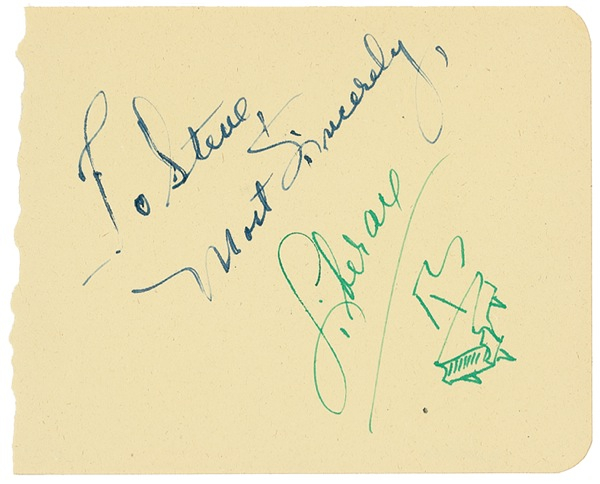 To Steve,
Most Sincerely,
Liberace